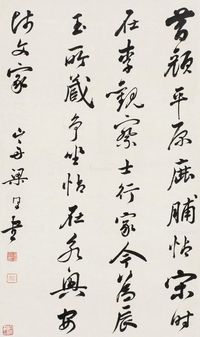 昔顏平原鹿脯帖宋時
在李觀察士行家今為辰
玉所藏爭坐帖在永興安
師文家
山舟梁同書